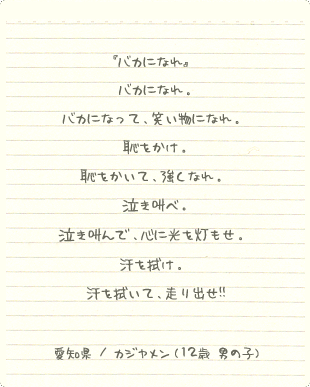 『バカになれ』
バカになれ。
バカになって、笑い物になれ。
恥をかけ。
恥をかいて、強くなれ。
泣き叫べ。
泣き叫んで、心に光を灯もせ。
汗を拭け。
汗を拭いて、走り出せ!!
愛知県 / カジヤメン (12歳 男の子)